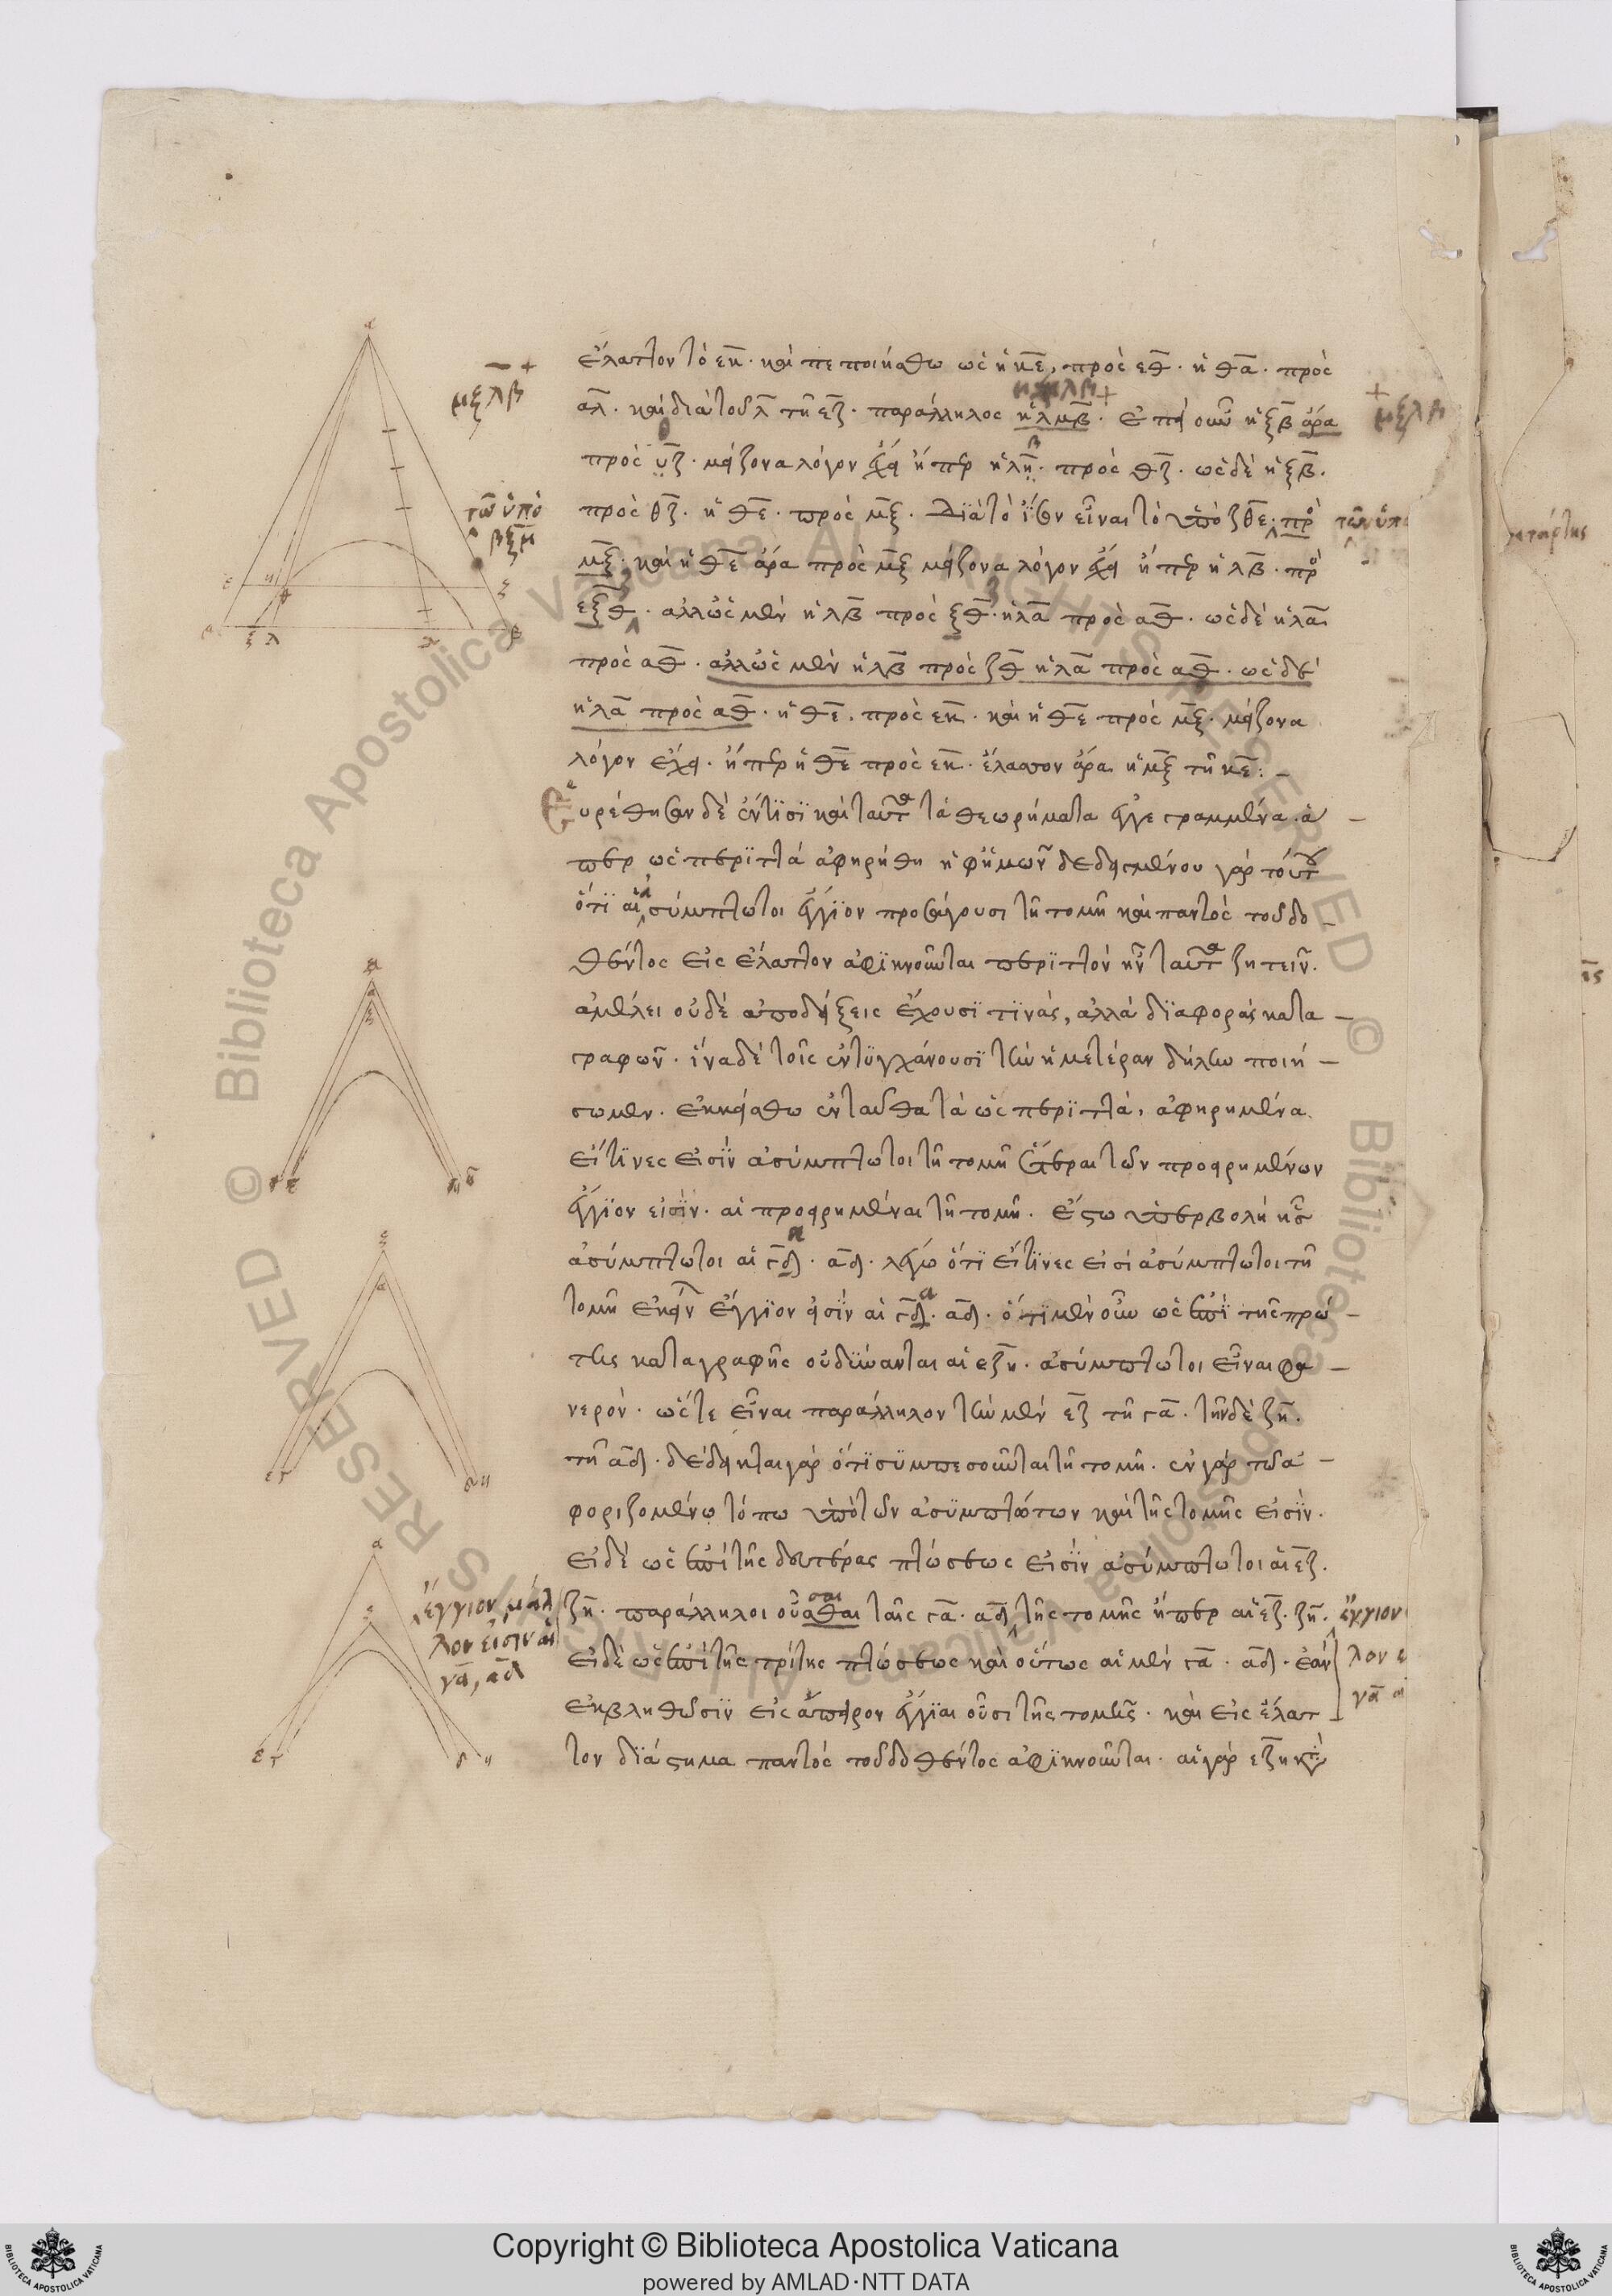 ἔλαττον τὸ εκ̅. καὶ πεποιήσθω ὡς ἡ κε̅, πρὸς εθ̅. ἡ θα̅. πρὸς
αλ̅. καὶ διὰ τοῦ λ̅ τῆ εζ̅. παράλληλος ἡ λμβ̅. ἐπεὶ οὖν ἡ ξβ̅ ἄρα
πρὸς υζ̅. μείζονα λόγον ἔχει ἤπερ ἡ λη̅. πρὸς θζ̅. ὡς δὲ ἡ ξβ̅.
πρὸς θζ̅. ἡ θε̅. πρὸς μξ̅. Διὰ τὸ ἴσον εἶναι τὸ ὑπὸ ζθε̅. πρὸ
μξ̅. καὶ ἡ θε̅ ἄρα πρὸς μξ̅ μείζονα λόγον ἔχει ἤπερ ἡ λβ̅. πρὸ
εξθ̅. ἀλλ' ὡς μὲν ἡ λβ̅ πρὸς ξθ̅. ἡ λα̅ πρὸς αθ̅. ὡς δὲ ἡ λα̅
πρὸς αθ̅. ἀλλ' ὡς μὲν ἡ λβ̅ πρὸς ζθ̅ ἡ λα̅ πρὸς αθ̅. ὡς δὲ
ἡ λα̅ πρὸς αθ̅. ἡ θε̅. πρὸς εκ̅. καὶ ἡ θε̅ πρὸς μξ̅. μείζονα
λόγον ἔχει. ἤπερ ἡ θε̅ πρὸς εκ̅. ἔλασσον ἄρα ἡ μξ̅ τῆ κε̅:
Εὑρέθησαν δὲ ἔν τισι καὶ ταῦτα τὰ θεωρήματα ἐγγεγραμμένα. ἅ
περ ὡς περιττὰ ἀφηρήθη ὑφ' ἡμῶν δεδειγμένου γὰρ τούτου
ὅτι αἱ ἀσύμπτωτοι ἔγγιον προσάγουσι τῆ τομῆ καὶ παντὸς τοῦ δο
θέντος εἰς ἔλαττον ἀφικνοῦνται περιττὸν ἦν ταῦτα ζητεῖν.
ἀμέλει οὐδὲ ἀποδείξεις ἔχουσι τινὰς, ἀλλὰ διαφορὰς κατα
γραφῶν. ἵνα δὲ τοῖς ἐντυγχάνουσι τὴν ἡμετέραν δῆλον ποιή
σωμεν. ἐκκείσθω ἐνταῦθα τὰ ὡς περιττὰ, ἀφηρημένα.
εἴ τινες εἰσὶν ἀσύμπτωτοι τῆ τομῆ ἕτεραι τῶν προειρημένων
ἔγγιον εἰσὶν. αἱ προειρημέναι τῆ τομῆ. ἔστω ὑπερβολὴ ἧς
ἀσύμπτωτοι αἱ γδ̅. αδ̅. λέγω ὅτι εἴ τινες εἰσὶ ἀσύμπτωτοι τῆ
τομῆ ἐκείνων ἔγγιον εἰσὶν αἱ γδ̅. αδ̅. ὅτι μὲν οὖν ὡς ἐπὶ τῆς πρώ
της καταγραφῆς οὐ δύνανται αἱ εζη̅. ἀσύμπτωτοι εἶναι φα
νερὸν. ὥστε εἶναι παράλληλον τὴν μὲν εζ̅ τῆ γα̅. τὴν δὲ ζη̅.
τῆ αδ̅. δέδεικται γὰρ ὅτι συμπεσοῦνται τῆ τομῆ. ἐν γὰρ τῶ ἀ
φοριζομένω τόπω ὑπὸ τῶν ἀσυμπτώτων καὶ τῆς τομῆς εἰσὶν.
εἰ δὲ ὡς ἐπὶ τῆς δευτέρας πτώσεως εἰσὶν ἀσύμπτωτοι αἱ εζ̅.
ζη̅. παράλληλοι οὖσαι ταῖς γα̅. αδ̅ τῆς τομῆς ἤπερ αἱ εζ̅. ζη̅.
εἰ δὲ ὡς ἐπὶ τῆς τρίτης πτώσεως καὶ οὕτως αἱ μὲν γα̅. αδ̅. ἐὰν
ἐκβληθῶσιν εἰς ἄπειρον ἔγγιαι οὖσι τῆς τομῆς. καὶ εἰς ἔλατ
τον διάστημα παντὸς τοῦ δοθέντος ἀφικνοῦνται. αἱ γὰρ εζη
μξλβ
τῶν ὑπὸ
βξμ
ἔγγιον μᾶλ
λον εἰσὶν αἱ
γα̅, αδ̅
μξλβ
τῶν ὑπ
ἔγγιον
λον
γα̅
Copyright © Biblioteca Apostolica Vaticana
powered by AMLAD·NTT DATA